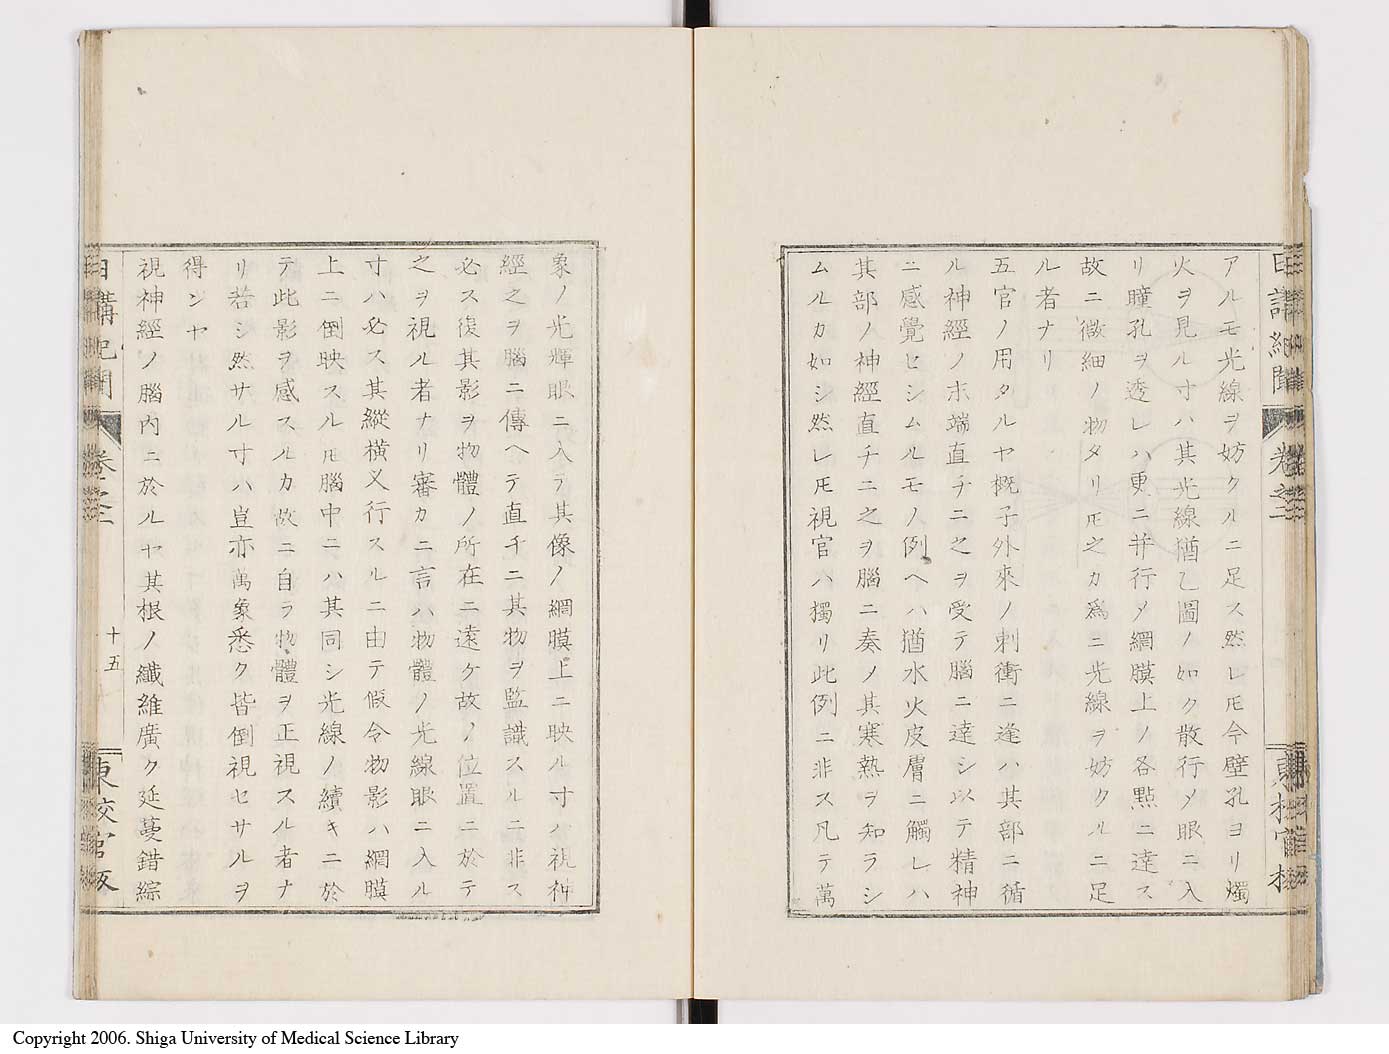 アルモ光線ヲ妨クルニ足ス然レ𪜈今壁孔ヨリ燭
火ヲ見ル寸ハ其光線猶乙圖ノ如ク散行メ眼ニ入
リ瞳孔ヲ透レハ更ニ并行メ網膜上ノ各點ニ達ス
故ニ微細ノ物タリ𪜈之カ爲ニ光線ヲ妨クルニ足
ル者ナリ
五官ノ用タルヤ概子外來ノ刺衝ニ逢ハ其部ニ循
ル神經ノ末端直チニ之ヲ受テ腦ニ達シ以テ精神
ニ感覺セシムルモノ例ヘハ猶水火皮膚ニ觸レハ
其部ノ神經直チニ之ヲ腦ニ奏ノ其寒熱ヲ知ラシ
ムルカ如シ然レ𪜈視官ハ獨リ此例ニ非ス凡テ萬
象ノ光輝眼ニ入テ其像ノ網膜上ニ映ル寸ハ視神
經之ヲ腦ニ傳ヘテ直チニ其物ヲ監識スルニ非ス
必ス復其影ヲ物體ノ所在ニ遠ケ故ノ位置ニ於テ
之ヲ視ル者ナリ審カニ言ハ物體ノ光線眼ニ入ル
寸ハ必ス其縱横㐅行スルニ由テ假令物影ハ網膜
上ニ倒映スル𪜈腦中ニハ其同シ光線ノ續キニ於
テ此影ヲ感スルカ故ニ自ラ物體ヲ正視スル者ナ
リ若シ然サル寸ハ豈亦萬象悉ク皆倒視セサルヲ
得ンヤ
視神經ノ腦内ニ於ルヤ其根ノ纖維廣ク延蔓錯綜
日講紀聞 卷之二
十五
東校官版
Copyright 2006. Shiga University of Medical Science Library